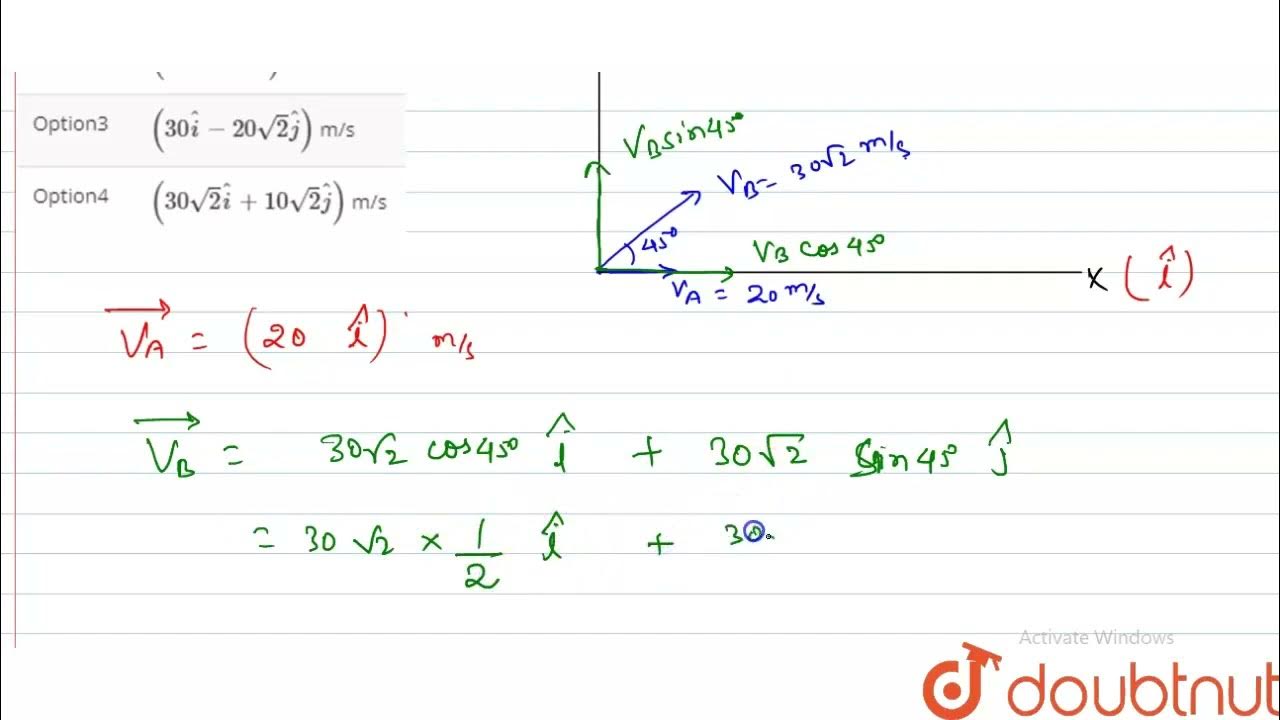 Option3 (30î − 20√2ĵ) m/s
Option4 (30√2î + 10√2ĵ) m/s
V_B sin45°
V_B = 30√2 m/s
45°
V_B cos 45°
V_A = 20 m/s
X (î)
V_A⃗ = (20 î) m/s
V_B⃗ = 30√2 cos45° î + 30√2 Sin45° ĵ
= 30 √2 × 1/2 î + 30
Activate Windows
doubtnut